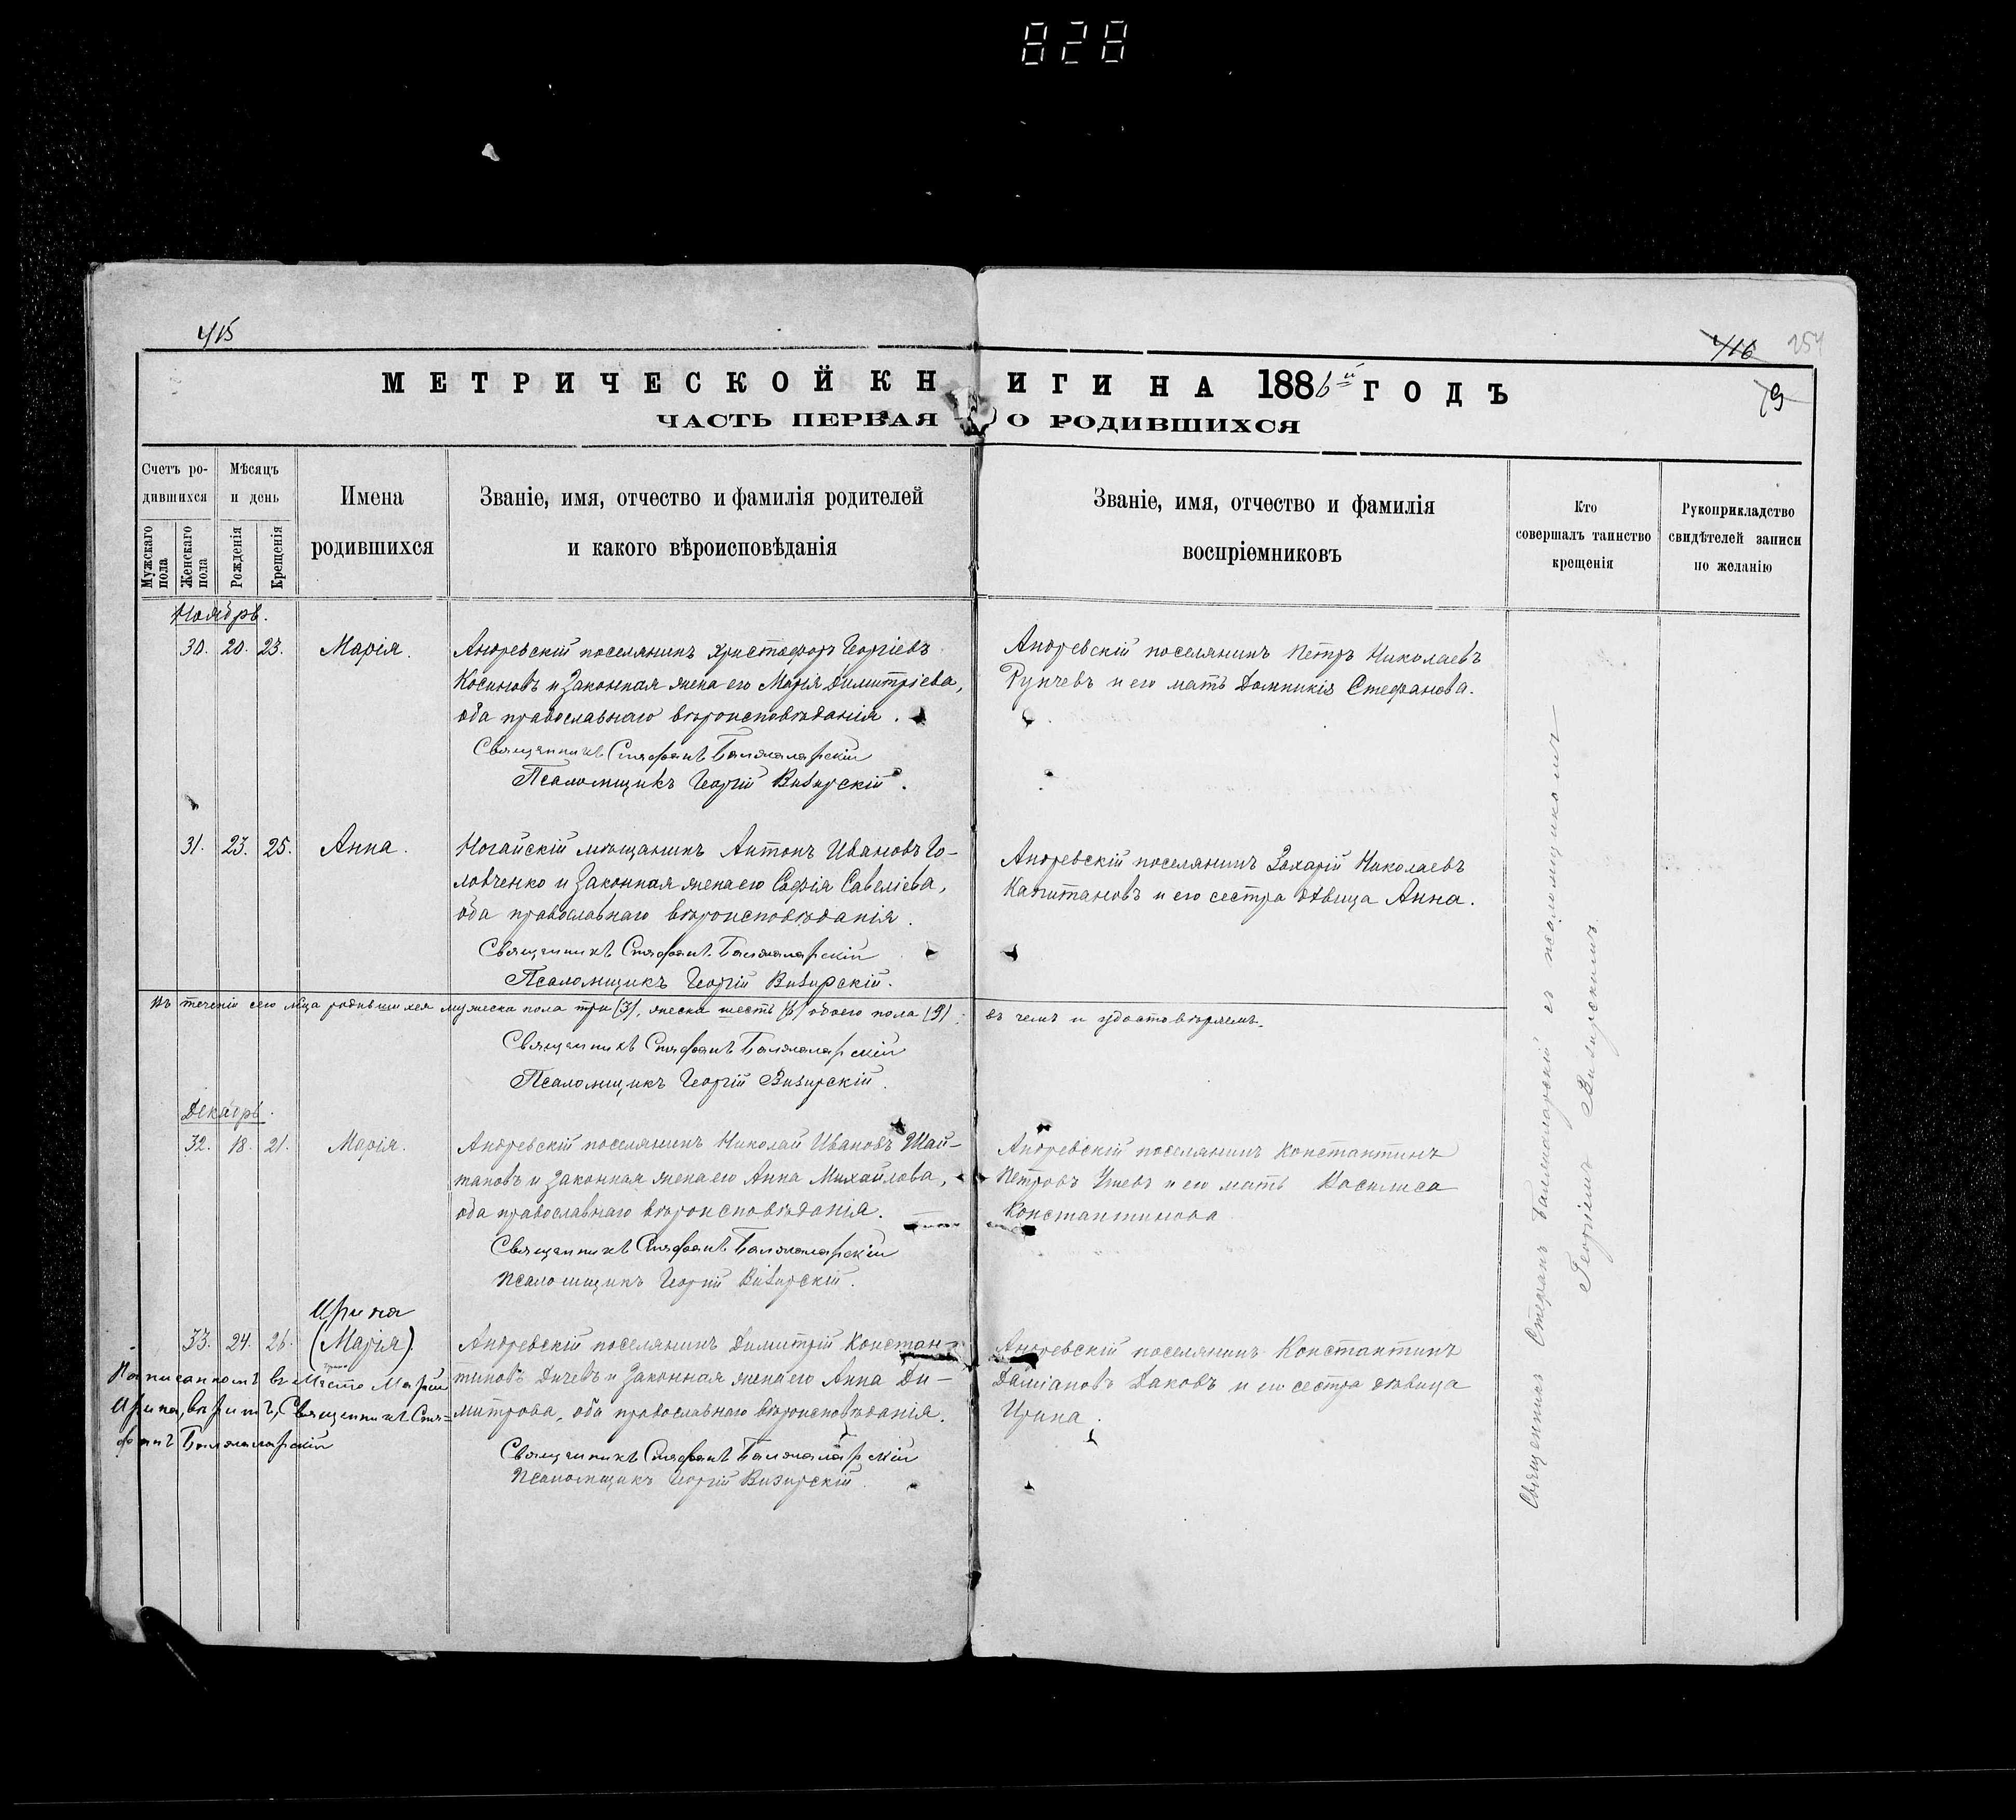 828
415
416
254
79
МЕТРИЧЕСКОЙ КНИГИ НА 1886й ГОДЪ
ЧАСТЬ ПЕРВАЯ О РОДИВШИХСЯ
Счетъ ро-
дившихся
Мужскаго пола
Женскаго пола
Мѣсяцъ
и день
Рожденія
Крещенія
Имена
родившихся
Званіе, имя, отчество и фамилія родителей
и какого вѣроисповѣданія
Званіе, имя, отчество и фамилія
воспріемниковъ
Кто
совершалъ таинство
крещенія
Рукоприкладство
свидѣтелей записи
по желанію
Ноябрь.
30. 20. 23. Марія.
Андревскій поселянинъ Христофоръ Георгіевъ
Косиновъ и законная жена его Марія Димитріева,
оба православнаго вѣроисповѣданія.
Священникъ Стефанъ Балжаларскій
Псаломщикъ Георгій Визирскій.
Андревскій поселянинъ Петръ Николаевъ
Рупчевъ и его мать Домникія Стефанова.
31. 23. 25. Анна.
Ногайскій мѣщанинъ Антонъ Ивановъ Го-
ловченко и законная жена его Софія Савеліева,
оба православнаго вѣроисповѣданія.
Священникъ Стефанъ Балжаларскій
Псаломщикъ Георгій Визирскій.
Андревскій поселянинъ Захарій Николаевъ
Капитановъ и его сестра дѣвица Анна.
Въ теченіи сего мѣца родившихся мужеска пола три (3), женска шесть (6) обоего пола (9); въ чемъ и удостовѣряемъ.
Священникъ Стефанъ Балжаларскій
Псаломщикъ Георгій Визирскій.
Декабрь.
32. 18. 21. Марія.
Андревскій поселянинъ Николай Ивановъ Шай-
тановъ и законная жена его Анна Михайлова,
оба православнаго вѣроисповѣданія.
Священникъ Стефанъ Балжаларскій
Псаломщикъ Георгій Визирскій.
Андревскій поселянинъ Константинъ
Петровъ и его мать Василиса
Константинова
Ирина
33. 24. 26. (Марія).
Андревскій поселянинъ Димитрій Констан-
тиновъ Дичевъ и законная жена его Анна Ди-
митрова, оба православнаго вѣроисповѣданія.
Священникъ Стефанъ Балжаларскій
Псаломщикъ Георгій Визирскій.
Андревскій поселянинъ Константинъ
Даміановъ Даковъ и его сестра дѣвица
Ирина.
Написанному вмѣсто Маріи
Ирина, вѣрить, Священникъ Сте-
фанъ Балжаларскій
Священникъ Стефанъ Балжаларскій съ псаломщикомъ
Георгіемъ Визирскимъ